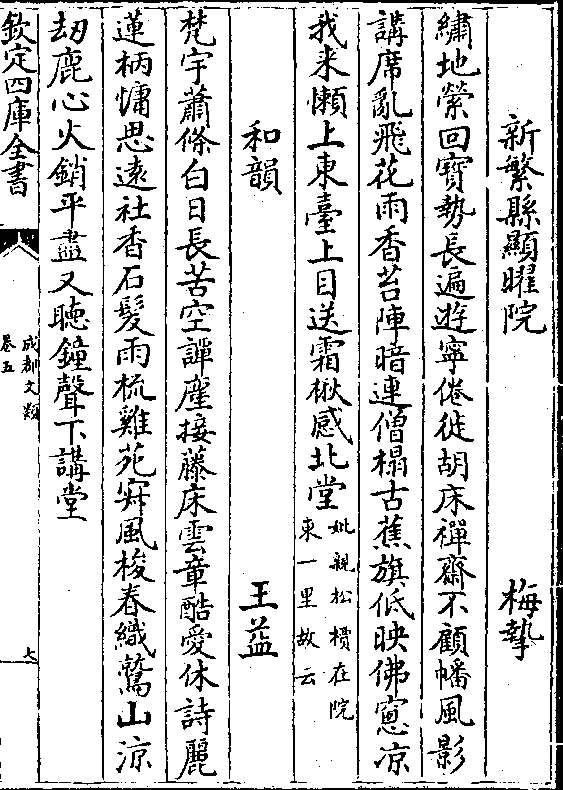 新繁縣顯曜院　梅摯
繡地縈回寶勢長遍遊寧倦徙胡床禪齋不顧幡風影
講席亂飛花雨香苔陣暗連僧榻古蕉旗低映佛窻凉
我来懶上東臺上目送霜楸感北堂妣親松檟在院東一里故云
和韻　王益
梵宇蕭條白日長苦空譚麈接藤床雲章酷愛休詩麗
蓮柄慵思逺社香石髮雨梳雞苑寐風梭春織鷲山涼
刼鹿心火銷平盡又聴鐘聲下講堂
欽定四庫全書
成都文類
卷五
七